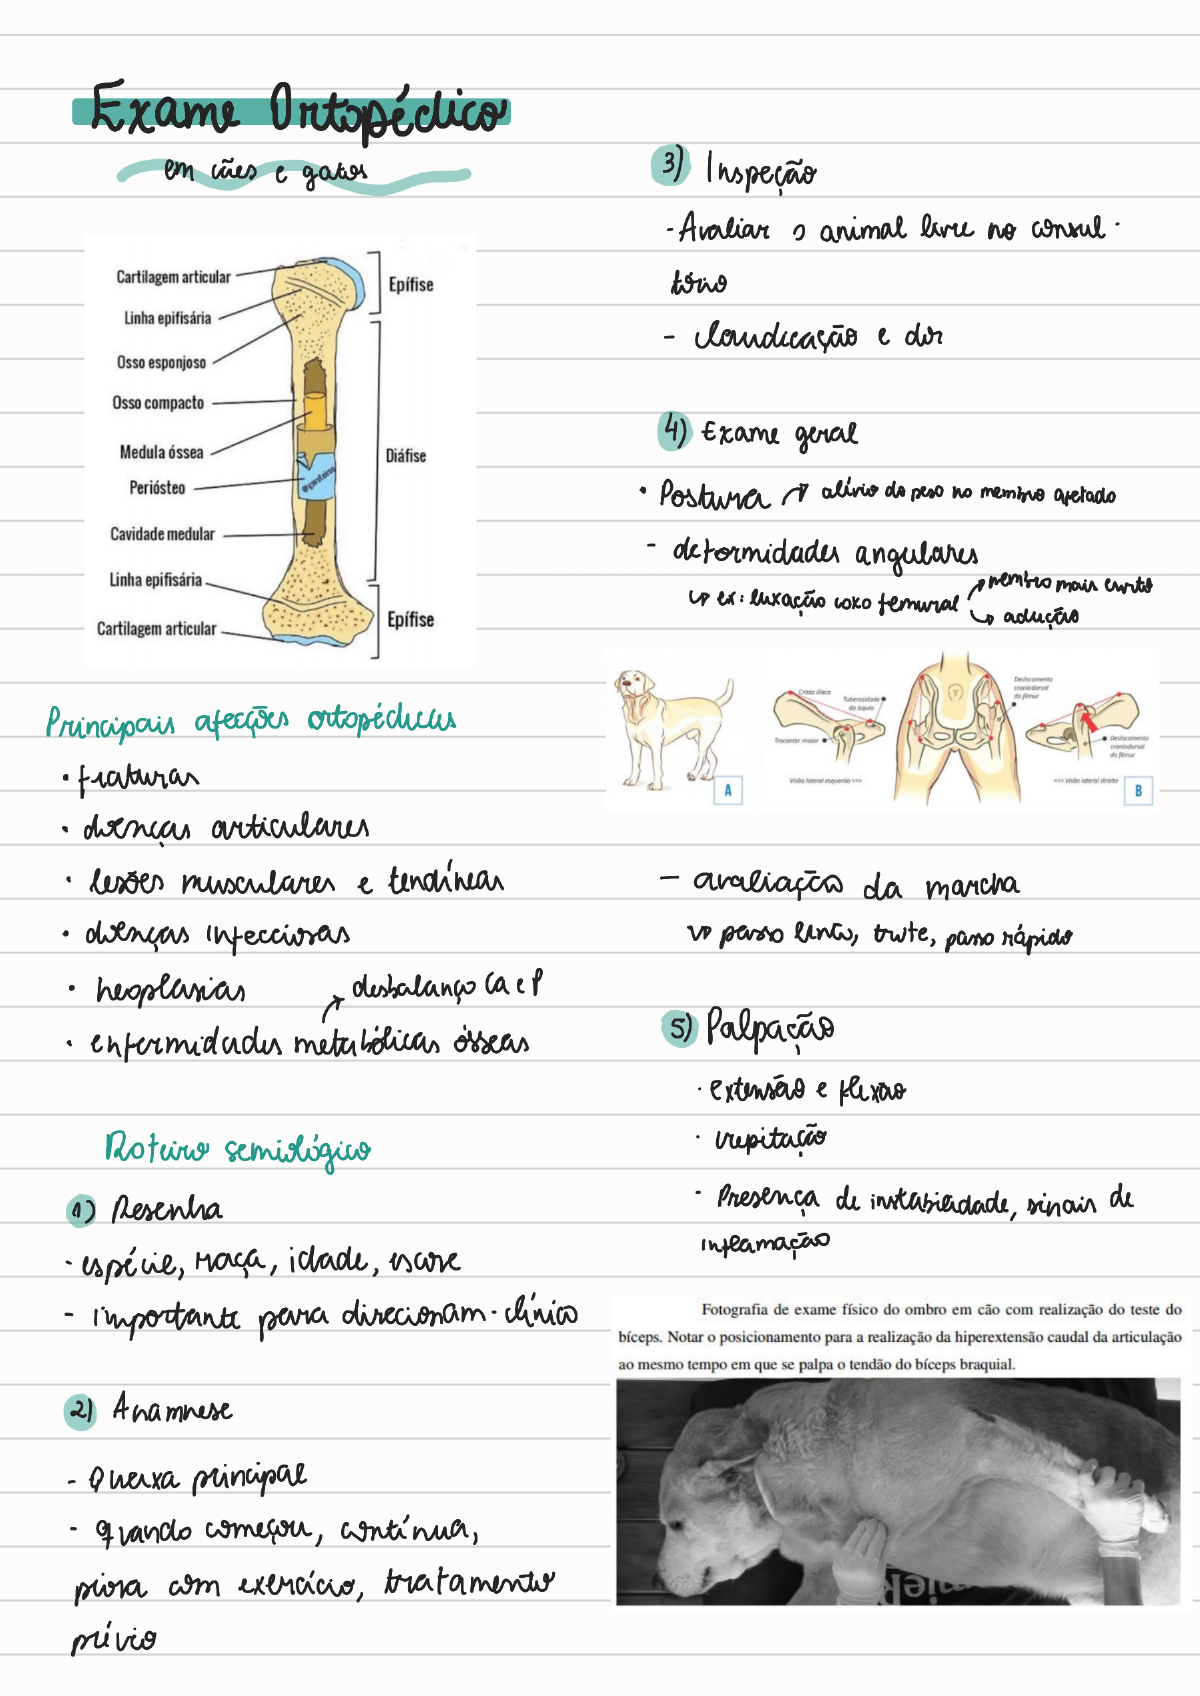 Exame Ortopédico
em cães e gatos
Cartilagem articular
Epífise
Linha epifisária
Osso esponjoso
Osso compacto
Medula óssea
Diáfise
Periósteo
Cavidade medular
Linha epifisária
Epífise
Cartilagem articular
Principais afecções ortopédicas
• fraturas
• doenças articulares
• lesões musculares e tendíneas
• doenças infecciosas
• neoplasias
desbalanço Ca e P
• enfermidades metabólicas ósseas
Roteiro semiológico
1) Resenha
- espécie, raça, idade, escore
- importante para direcionam. clínico
2) Anamnese
- Queixa principal
- quando começou, contínua,
piora com exercício, tratamento
prévio
3) Inspeção
- Avaliar o animal livre no consul-
tório
- claudicação e dor
4) Exame geral
• Postura → alívio do peso no membro afetado
- deformidades angulares
↳ ex: luxação coxo femural → membro mais curto
↳ adução
Crista ilíaca
Tuberosidade
do ísquio
Trocanter maior
Visão lateral esquerda >>>
Deslocamento
craniodorsal
do fêmur
Deslocamento
craniodorsal
do fêmur
<<< Visão lateral direita
A
B
- avaliação da marcha
↳ passo lento, trote, passo rápido
5) Palpação
• extensão e flexão
• crepitação
• Presença de instabilidade, sinais de
inflamação
Fotografia de exame físico do ombro em cão com realização do teste do
bíceps. Notar o posicionamento para a realização da hiperextensão caudal da articulação
ao mesmo tempo em que se palpa o tendão do bíceps braquial.